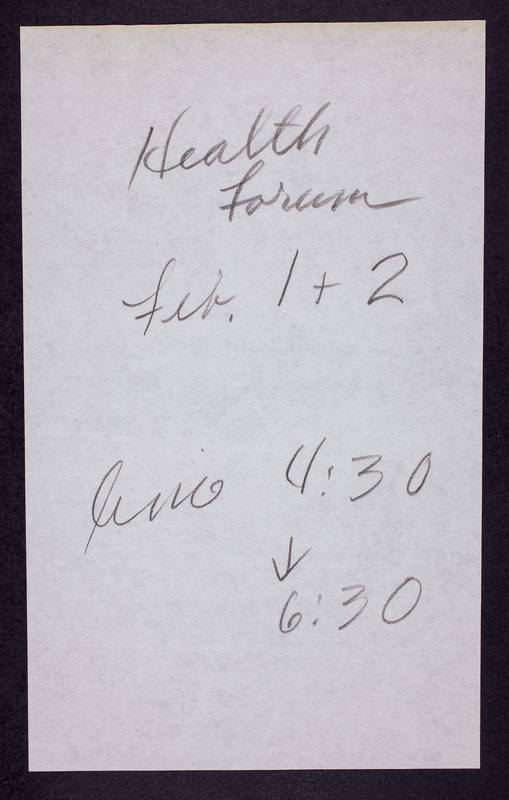 Health
Forum
Feb. 1 + 2
4:30
↓
6:30